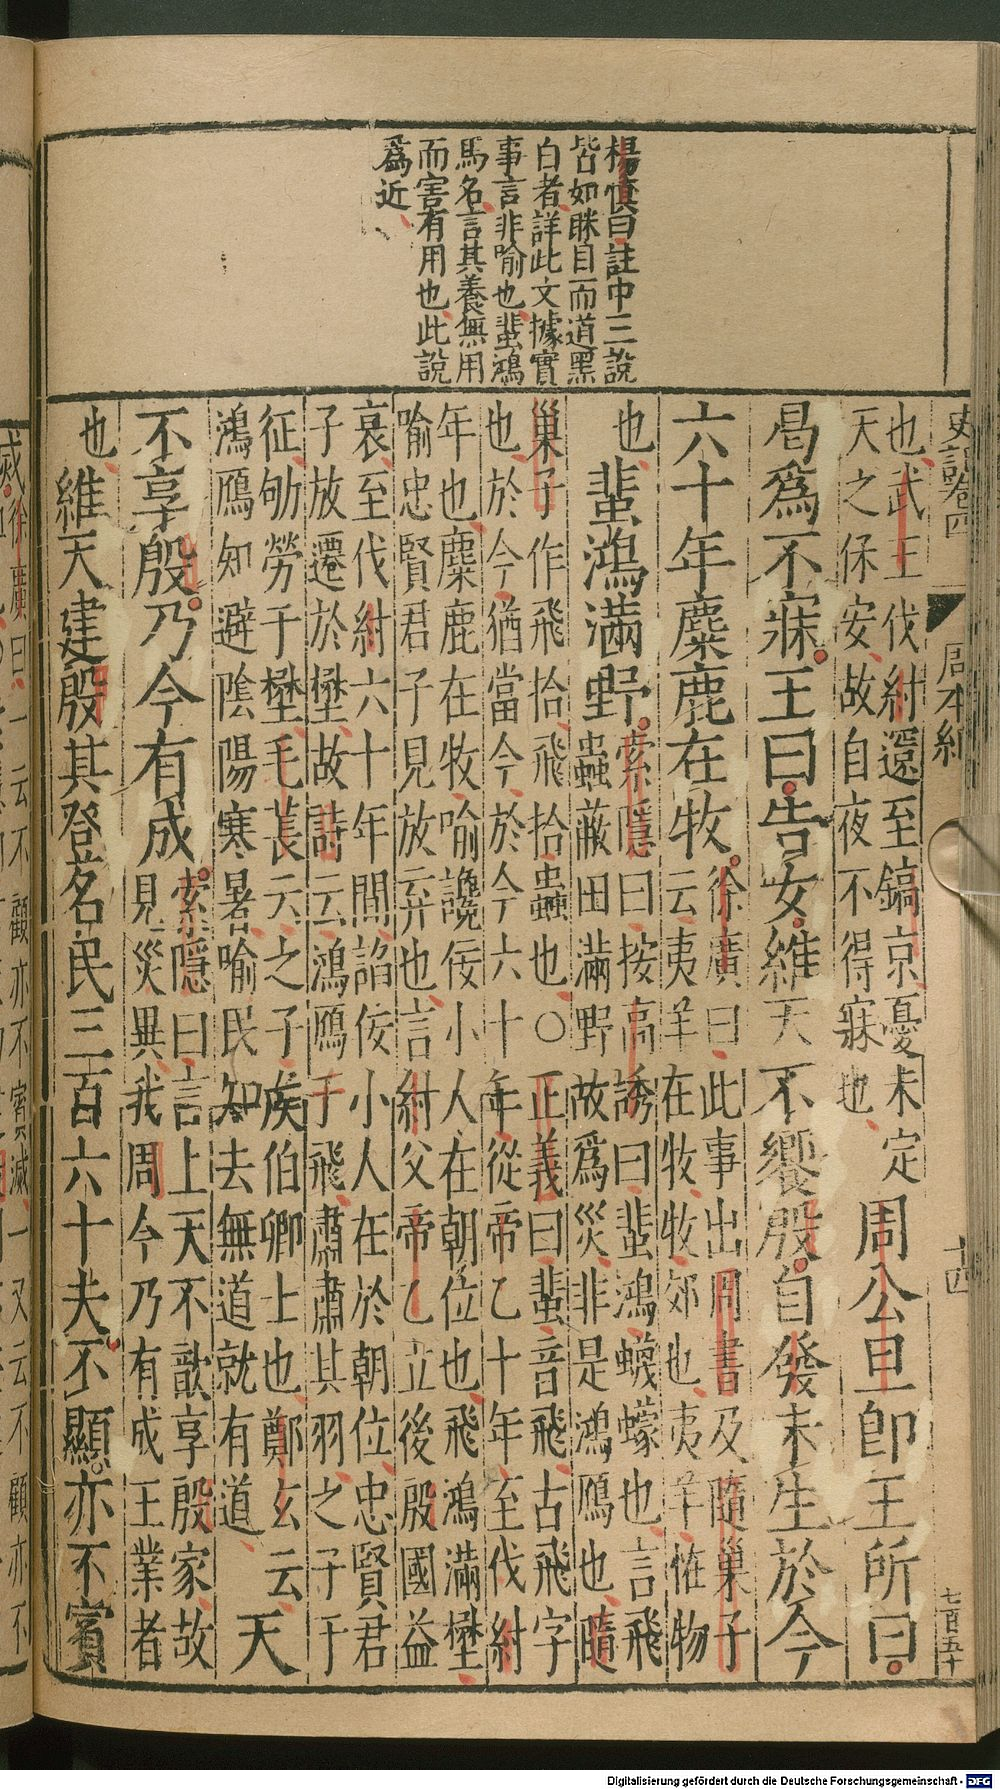 楊慎曰註中三說
皆如眯目而道黑
白者詳此文據實
事言非喻也蜚鴻
馬名言其養無用
而害有用也此說
爲近
史記卷四 周本紀 十四 七百五十
也武王伐紂還至鎬京憂未定
天之保安故自夜不得寐也
周公旦卽王所曰
曷爲不寐王曰告女維天不饗殷自發未生於今
六十年麋鹿在牧
徐廣曰此事出周書及隨巢子
云夷羊在牧牧郊也夷羊怪物
也
蜚鴻滿野
索隱曰按高誘曰蜚鴻蠛蠓也言飛
蟲蔽田滿野故爲災非是鴻鴈也隨
巢子作飛拾飛拾蟲也○正義曰蜚音飛古飛字
也於今猶當今於今六十年從帝乙十年至伐紂
年也麋鹿在牧喻讒佞小人在朝位也飛鴻滿壄
喻忠賢君子見放弃也言紂父帝乙立後殷國益
衰至伐紂六十年間諂佞小人在於朝位忠賢君
子放遷於壄故詩云鴻鴈于飛肅肅其羽之子于
征劬勞于壄毛萇云之子侯伯卿士也鄭玄云
鴻鴈知避陰陽寒暑喻民知去無道就有道
天
不享殷乃今有成
索隱曰言上天不歆享殷家故
見災異我周今乃有成王業者
也
維天建殷其登名民三百六十夫不顯亦不賓
滅
徐廣曰一云不顧亦不賓滅一又云不顧亦不
Digitalisierung gefördert durch die Deutsche Forschungsgemeinschaft - DFG